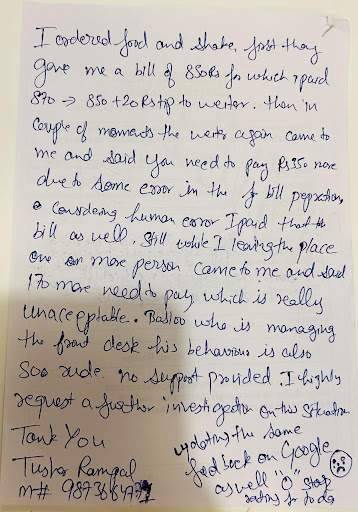 I ordered food and shake, first they
gave me a bill of 850Rs for which I paid
870 → 850 + 20 Rs tip to weiter. then in
couple of momards the weter again came to
me and said you need to pay Rs350 more
due to some error in the bill prepration,
Considering human error I paid that
bill as well. Still while I leaving the place
one more person came to me and said
170 more need to pay which is really
unacceptable. Basloo who is managing
the front desk his behaviour is also
Soo rude. no support provided I highly
request a further investigation on this situation
Tank You
updating the same
feedback on Google
as well "0" star
Tusher Ramgal
rating for today